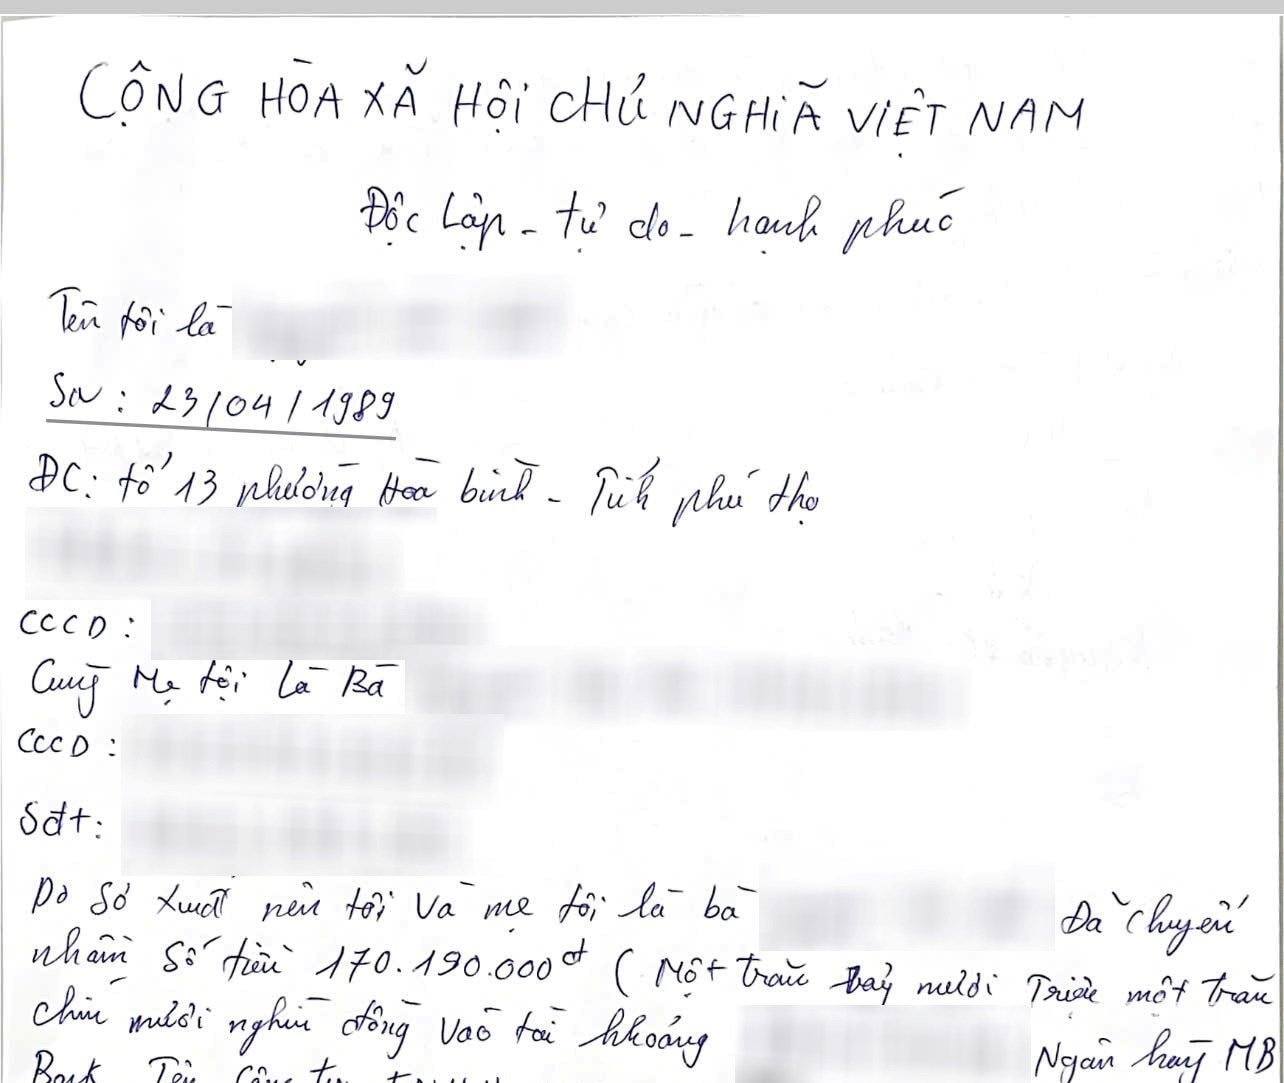 CỘNG HÒA XÃ HỘI CHỦ NGHĨA VIỆT NAM
Độc Lập - tự do - hạnh phúc
Tên tôi là
SN : 23/04/1989
ĐC: tổ 13 phường Hòa bình - Tỉnh phú thọ
CCCD :
Cùng Mẹ tôi Là Bà
CCCD :
Sđt:
Do Sơ xuất nên tôi Và mẹ tôi là bà Đã chuyển
nhầm Số tiền 170.190.000đ ( Một trăm bảy mươi Triệu một trăm
chín mươi nghìn đồng Vào tài khoảng Ngân hàng MB
Bank Tên Công ty